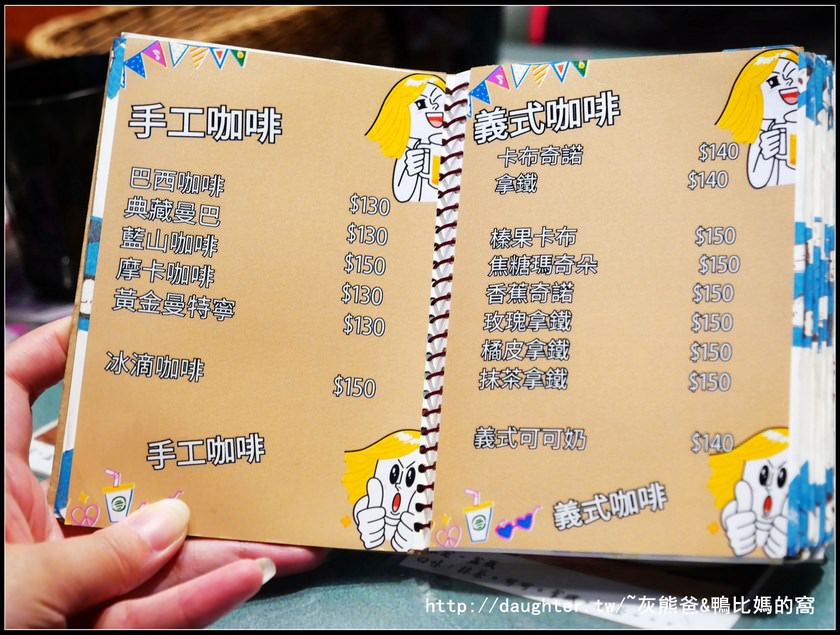 手工咖啡
巴西咖啡 $130
典藏曼巴 $130
藍山咖啡 $150
摩卡咖啡 $130
黃金曼特寧 $130
冰滴咖啡 $150
手工咖啡
義式咖啡
卡布奇諾 $140
拿鐵 $140
榛果卡布 $150
焦糖瑪奇朵 $150
香蕉奇諾 $150
玫瑰拿鐵 $150
橘皮拿鐵 $150
抹茶拿鐵 $150
義式可可奶 $140
義式咖啡
http://daughter.tw/~灰熊爸&鴨比媽的窩